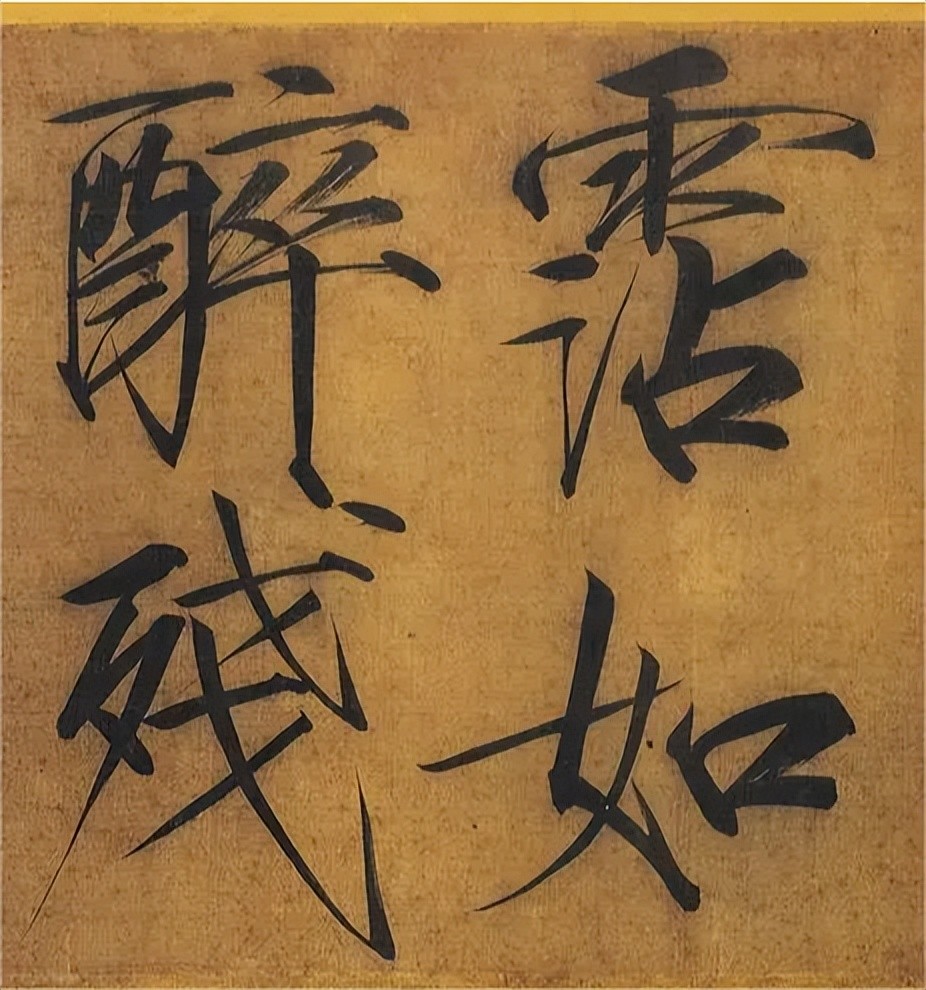 霑如
醉殘